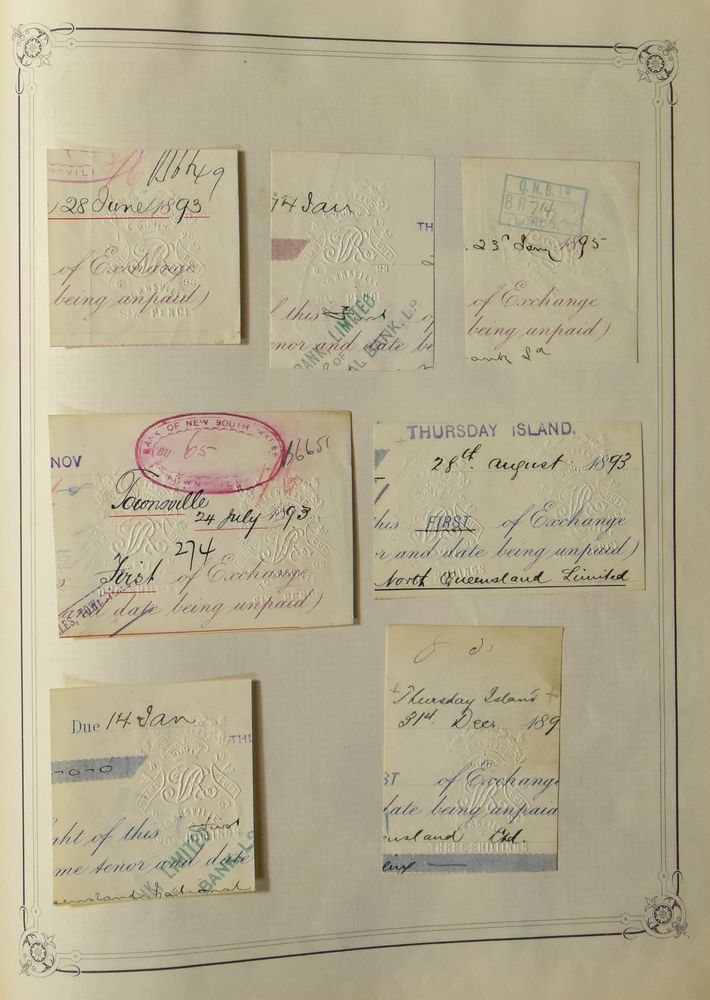 28 June 1893
of Exchange
being unpaid)
SIX PENCE
14 Jan
TH
TOWNSVILLE
PENCE
this First
BANK, LIMITED
OF
AL BANK, LD
enor and date be
Q.N.B. LD
BR 714
23rd Jany 1895
of Exchange
being unpaid)
ank Ld
NOV
BANK OF NEW SOUTH WALES
65
TOWNSVILLE
Townsville
24 July 1893
274
First of Exchange
date being unpaid)
THURSDAY ISLAND.
28th august 1893
his FIRST of Exchange
or and date being unpaid)
North Queensland Limited
Due 14 Jan
THU
-0-0-0
TOWNSVILLE
ght of this First
SHILLINGS
me tenor and date
NK, LIMITED
BANK, LD
eensland National
Thursday Island
31st Decr. 189
ST of Exchange
date being unpaid
ensland Ltd
THREE SHILLINGS